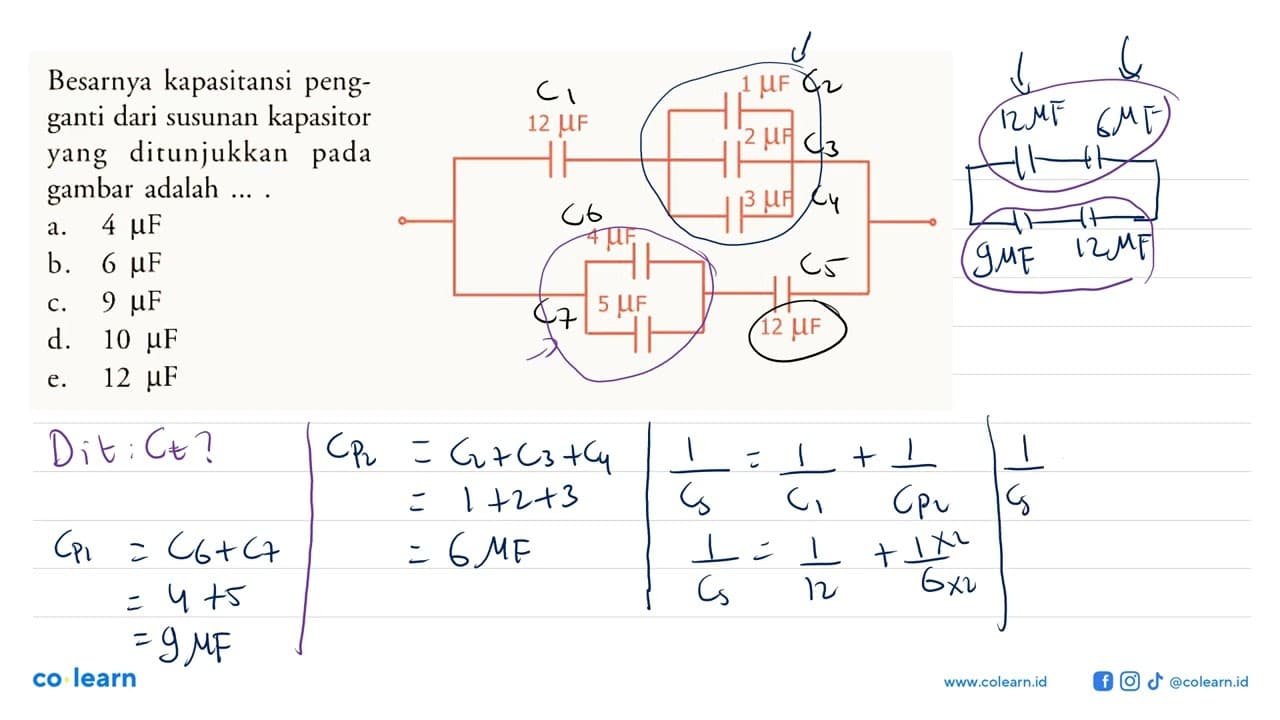 Besarnya kapasitansi peng-
ganti dari susunan kapasitor
yang ditunjukkan pada
gambar adalah ... .
a. 4 μF
b. 6 μF
c. 9 μF
d. 10 μF
e. 12 μF
C1
12 μF
1 μF C2
2 μF C3
3 μF C4
C6
4 μF
C7 5 μF
C5
12 μF
12 MF 6 MF
9 MF 12 MF
Dit : Ct?
CP1 = C6 + C7
= 4 + 5
= 9 MF
CP2 = C2 + C3 + C4
= 1 + 2 + 3
= 6 MF
1/Cs = 1/C1 + 1/CP2
1/Cs = 1/12 + 1x2/6x2
1/Cs
co learn
www.colearn.id
@colearn.id